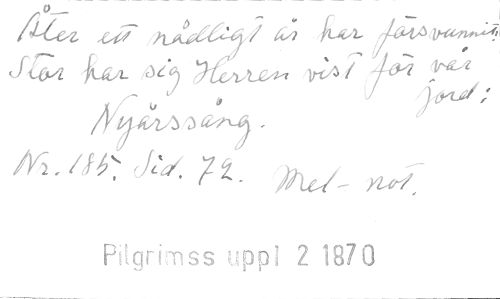 Åter ett nådligt år har försvunnit:
Stor har sig Herren vist för vår
jord:
Nyårssång.
Nr. 185. Sid. 72. Mel-not.
Pilgrimss uppl 2 1870